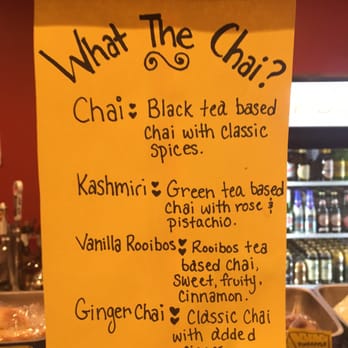 What The Chai?
Chai: Black tea based
chai with classic
spices.
Kashmiri: Green tea based
chai with rose &
pistachio.
Vanilla Rooibos: Rooibos tea
based chai,
sweet, fruity,
cinnamon.
Ginger Chai: Classic Chai
with added